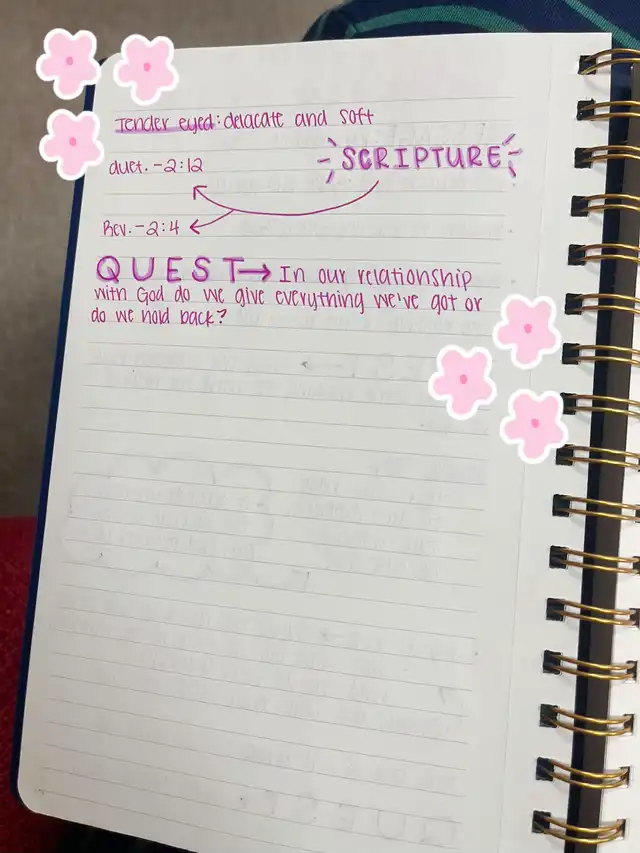 Tender eyed: delacate and soft
duet. - 2:12
SCRIPTURE
Rev. - 2:4
QUEST→ In our relationship
with God do we give everything we've got or
do we hold back?